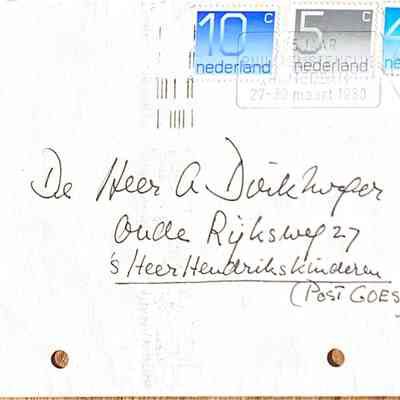 10 c
nederland
5 c
nederland
5 JAAR
27-30 maart 1980
De Heer A
Oude Rijksweg 27
's Heer Hendrikskinderen
(Post GOES